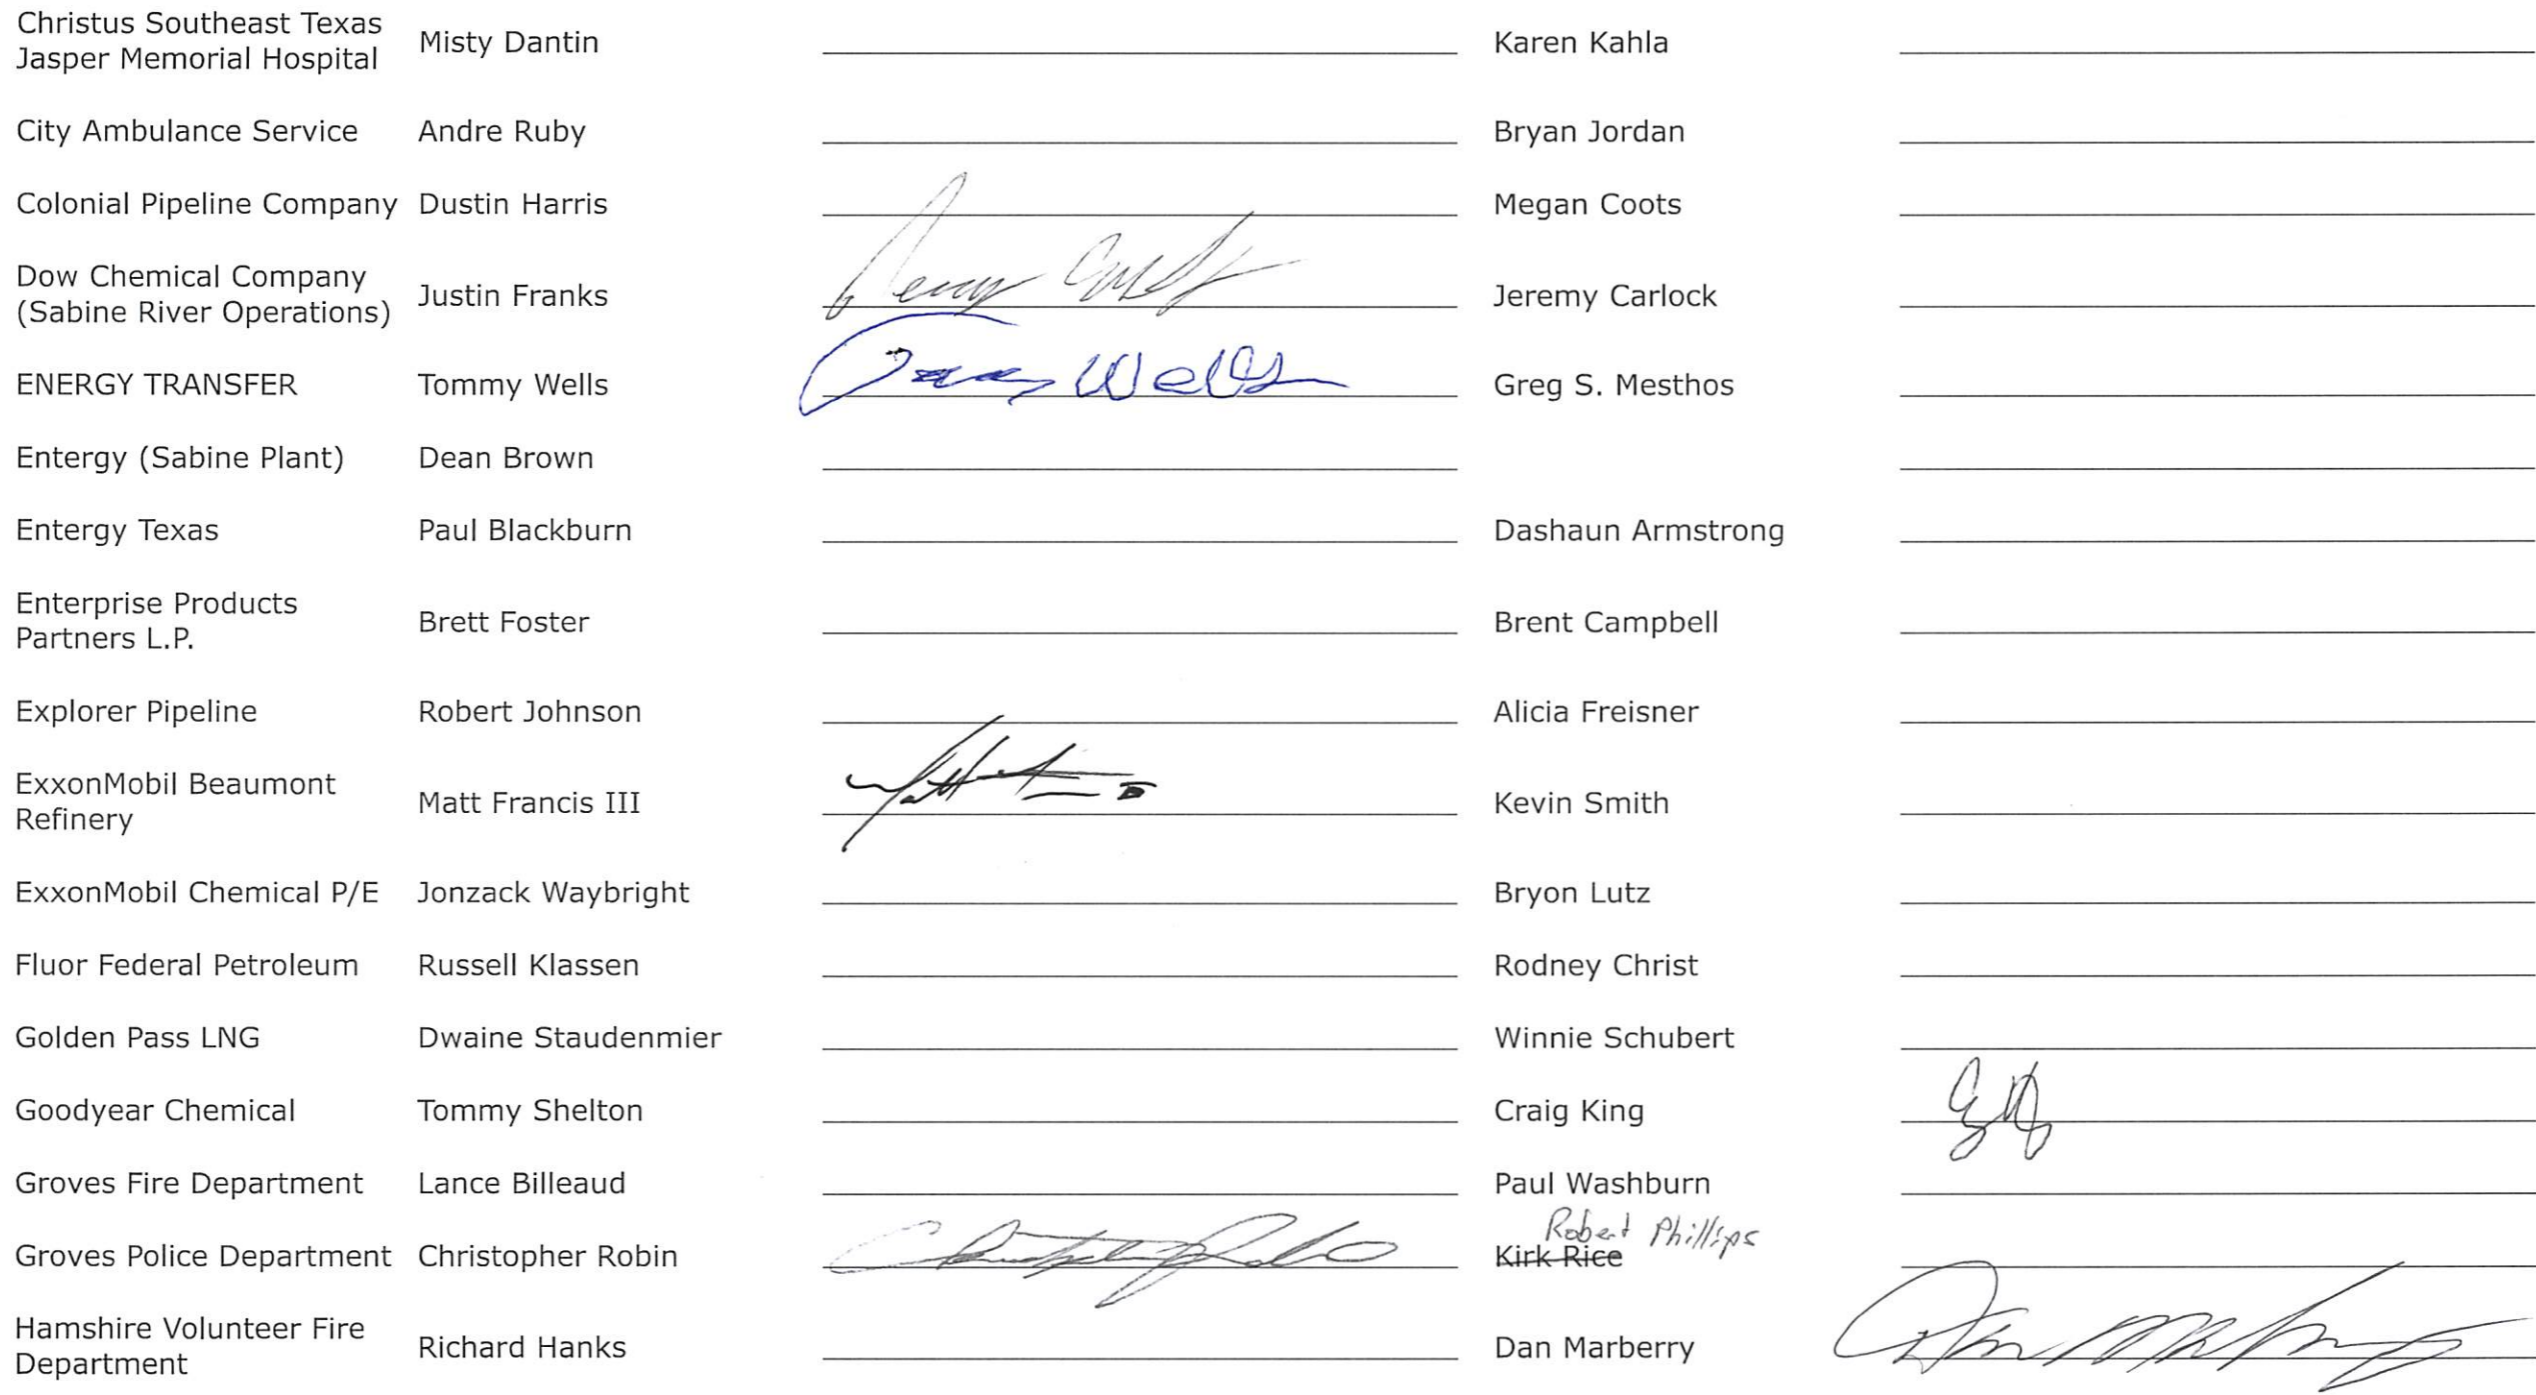 Christus Southeast Texas
Jasper Memorial Hospital Misty Dantin Karen Kahla
City Ambulance Service Andre Ruby Bryan Jordan
Colonial Pipeline Company Dustin Harris Megan Coots
Dow Chemical Company
(Sabine River Operations) Justin Franks Jeremy Carlock
ENERGY TRANSFER Tommy Wells Tommy Wells Greg S. Mesthos
Entergy (Sabine Plant) Dean Brown
Entergy Texas Paul Blackburn Dashaun Armstrong
Enterprise Products
Partners L.P. Brett Foster Brent Campbell
Explorer Pipeline Robert Johnson Alicia Freisner
ExxonMobil Beaumont
Refinery Matt Francis III Kevin Smith
ExxonMobil Chemical P/E Jonzack Waybright Bryon Lutz
Fluor Federal Petroleum Russell Klassen Rodney Christ
Golden Pass LNG Dwaine Staudenmier Winnie Schubert
Goodyear Chemical Tommy Shelton Craig King
Groves Fire Department Lance Billeaud Paul Washburn
Robert Phillips
Groves Police Department Christopher Robin Kirk Rice
Hamshire Volunteer Fire
Department Richard Hanks Dan Marberry Dan Marberry